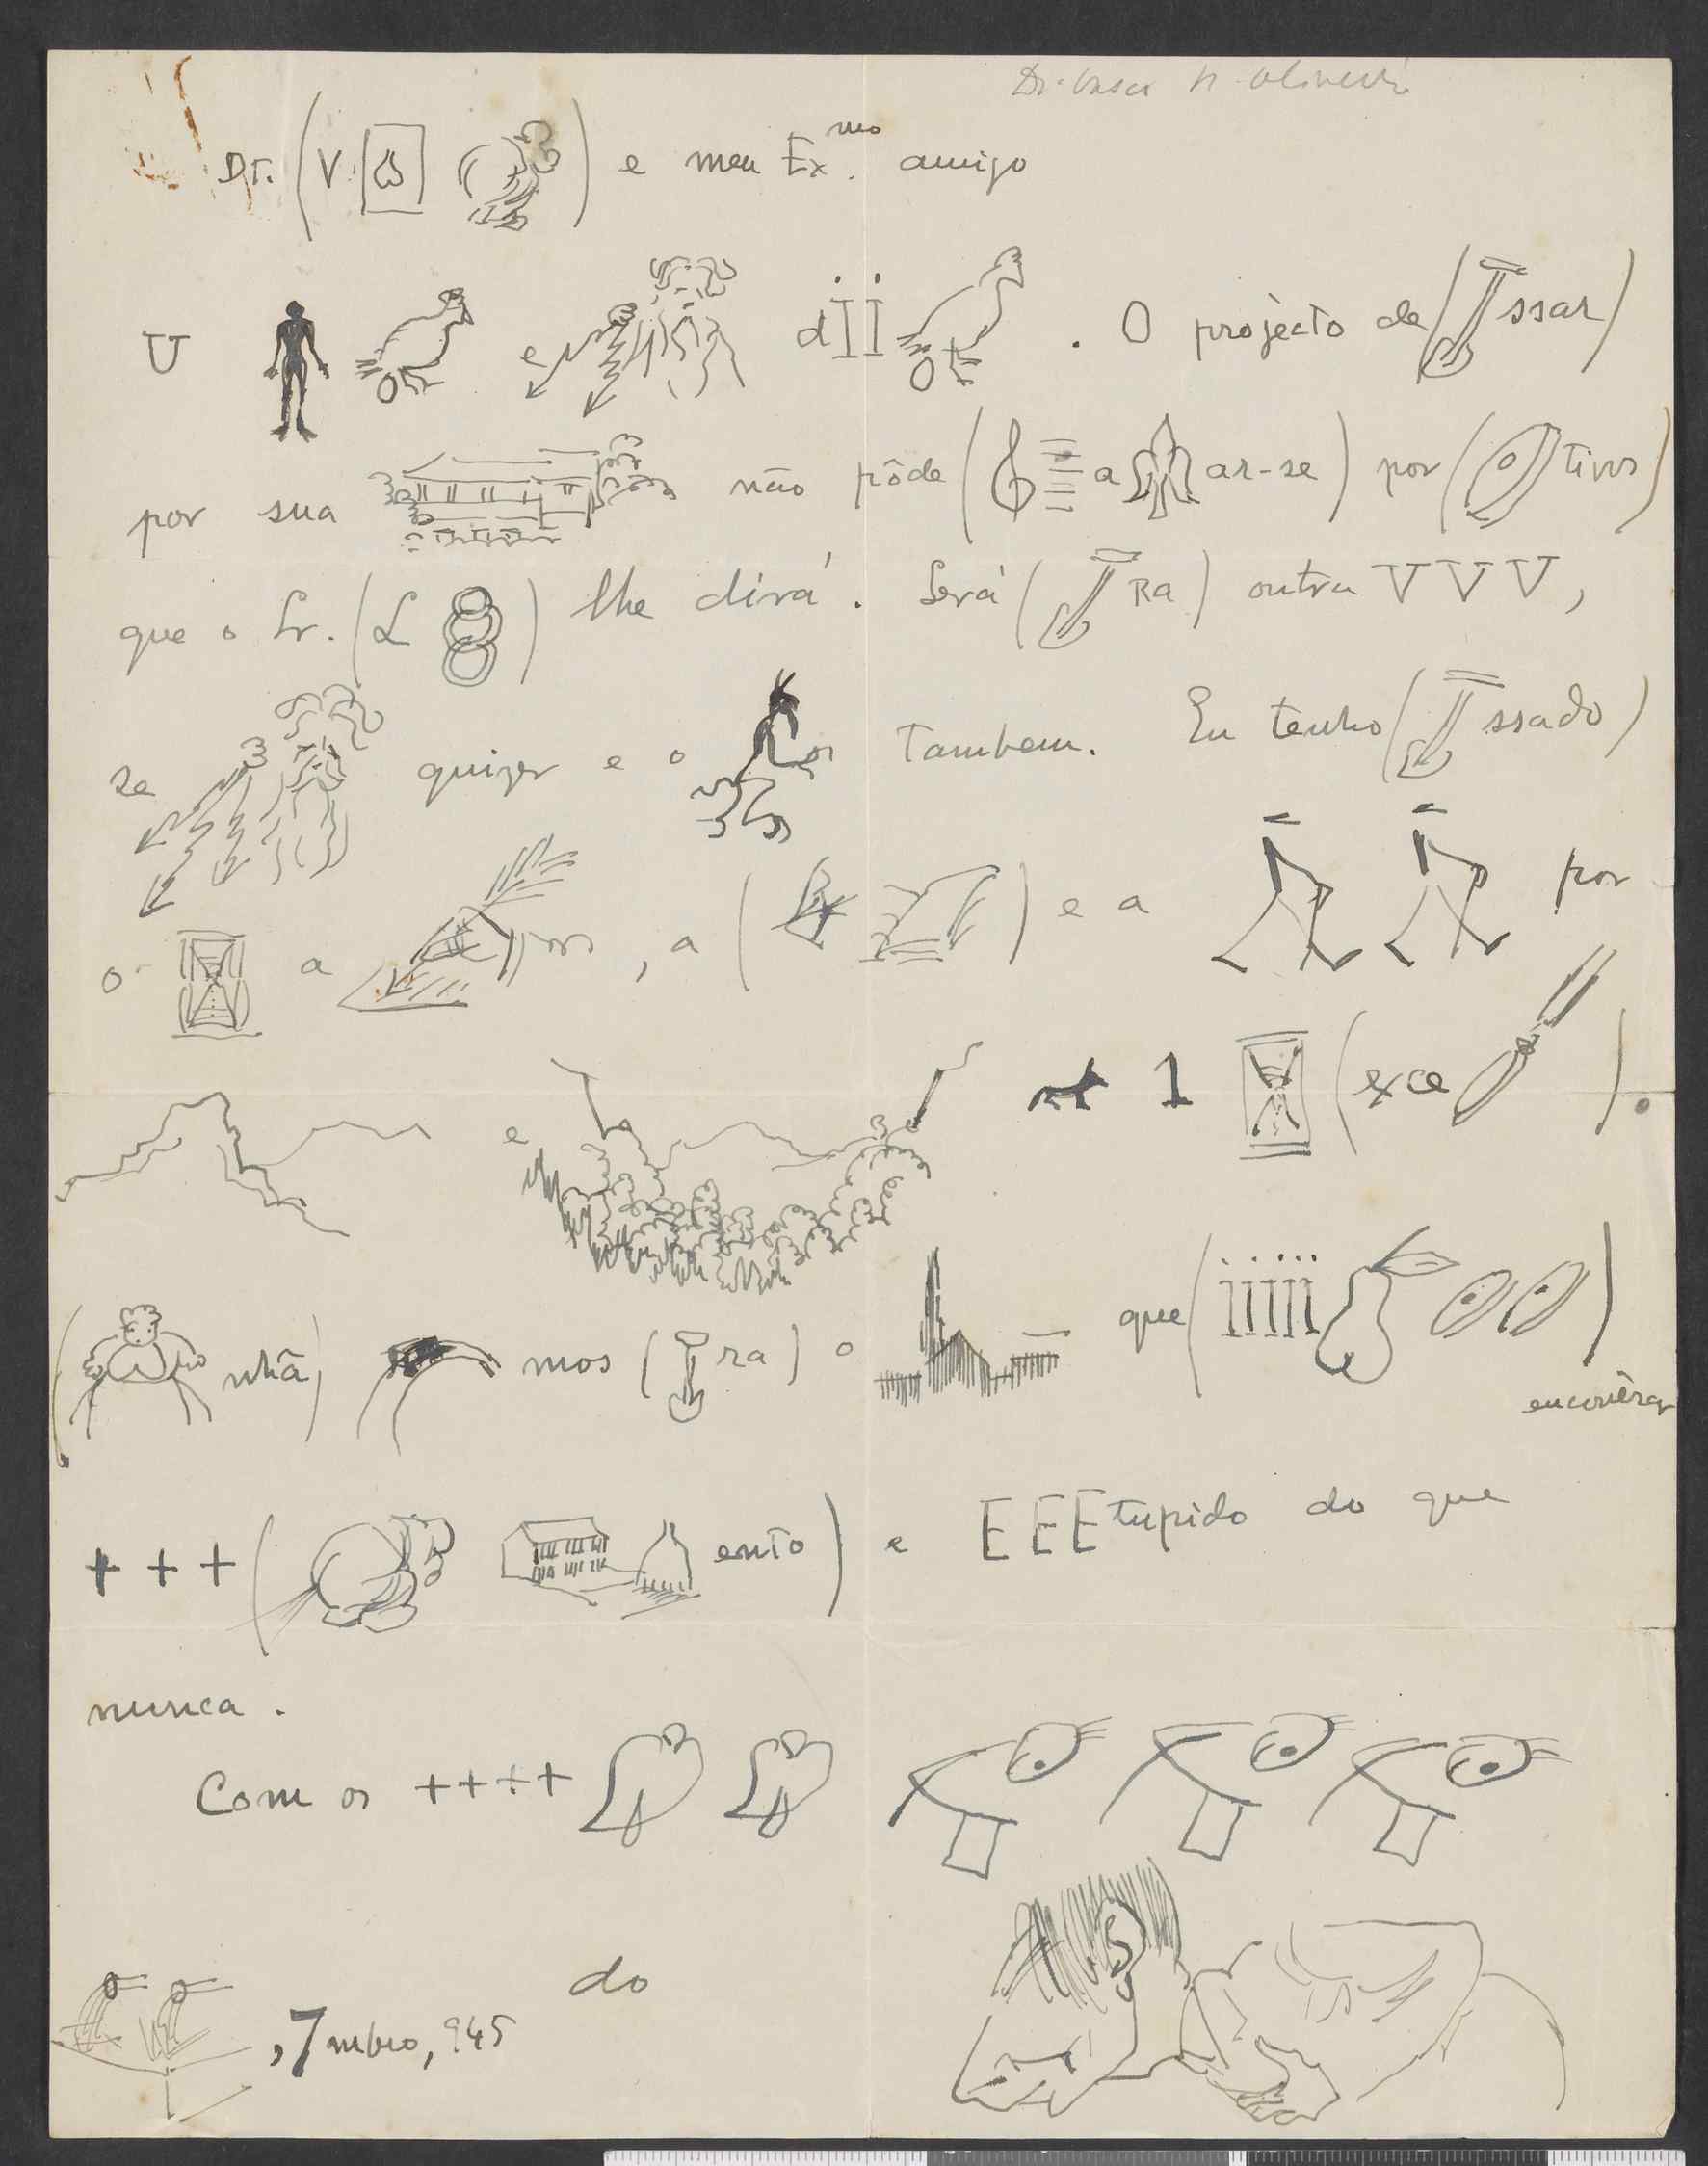 Dr. Vasco
Dr. (V ) e meu Exmo. amigo
U e dii . O projècto de ( ssar)
por sua não pôde ( a ar-se) por ( tivos)
que o Sr. (L ) lhe dirá. Será ( Ra) outra V V V,
se quizer e o tambem. Eu tenho ( ssado)
o a , a ( ) e a por
e 1 (exce ).
( nhã) mos ( ra) o que (iiiii )
encontrar
+ + + ( ento) e E E Etupido do que
nunca.
Com os ++++
, 7mbro, 945 do